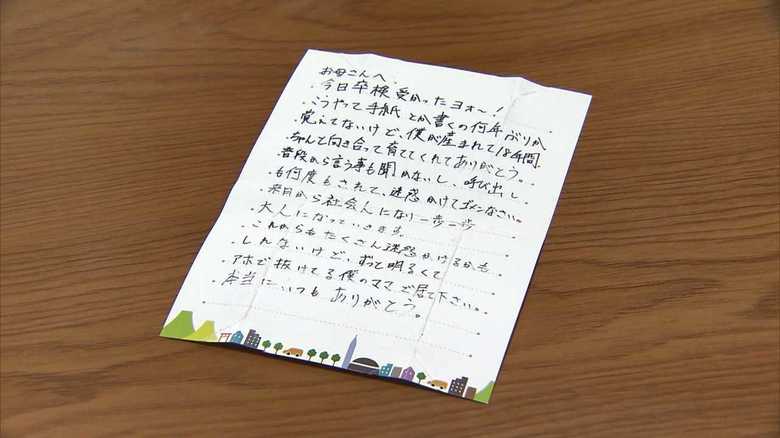 お母さんへ
今日卒検受かったヨォ〜!
こうやって手紙とか書くの何年ぶりか
覚えてないけど、僕が産まれて18年間
ちゃんと向き合って育ててくれてありがとう。
普段から言う事も聞かないし、呼び出し
も何度もされて、迷惑かけてゴメンなさい。
来月から社会人になり一歩一歩
大人になっていきます。
これからもたくさん迷惑かけるかも
しれないけど、ずっと明るくて
アホで抜けてる僕のママで居て下さい。
本当にいつもありがとう。